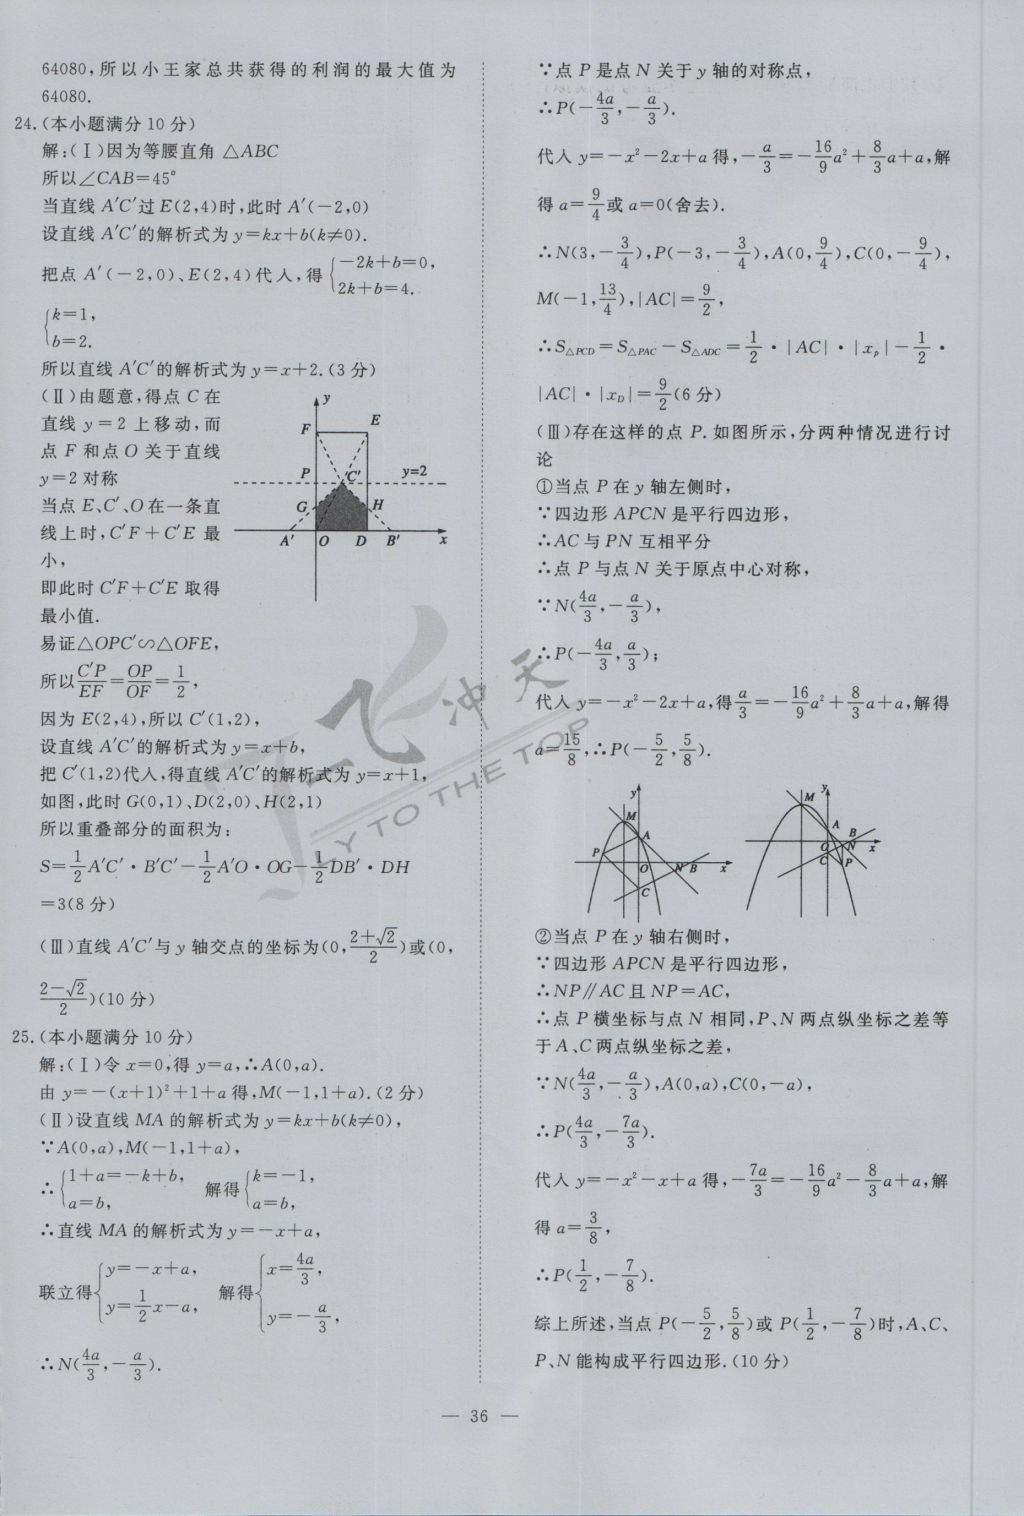 64080,所以小王家总共获得的利润的最大值为
64080.
24.(本小题满分10分)
解:(Ⅰ)因为等腰直角△ABC
所以∠CAB=45°
当直线A′C′过E(2,4)时,此时A′(-2,0)
设直线A′C′的解析式为y=kx+b(k≠0).
把点A′(-2,0)、E(2,4)代人,得{-2k+b=0, 2k+b=4.
{k=1, b=2.
所以直线A′C′的解析式为y=x+2.(3分)
(Ⅱ)由题意,得点C在
直线y=2上移动,而
点F和点O关于直线
y=2对称
当点E、C′、O在一条直
线上时,C′F+C′E最
小,
即此时C′F+C′E取得
最小值.
y
F
E
P
C′
y=2
G
H
A′
O
D
B′
x
易证△OPC′∽△OFE,
所以C′P/EF=OP/OF=1/2,
因为E(2,4),所以C′(1,2),
设直线A′C′的解析式为y=x+b,
把C′(1,2)代人,得直线A′C′的解析式为y=x+1,
如图,此时G(0,1)、D(2,0)、H(2,1)
所以重叠部分的面积为:
S=1/2A′C′·B′C′-1/2A′O·OG-1/2DB′·DH
=3(8分)
(Ⅲ)直线A′C′与y轴交点的坐标为(0,(2+√2)/2)或(0,
(2-√2)/2)(10分)
25.(本小题满分10分)
解:(Ⅰ)令x=0,得y=a,∴A(0,a).
由y=-(x+1)²+1+a得,M(-1,1+a).(2分)
(Ⅱ)设直线MA的解析式为y=kx+b(k≠0),
∵A(0,a),M(-1,1+a),
∴{1+a=-k+b, a=b, 解得{k=-1, a=b,
∴直线MA的解析式为y=-x+a,
联立得{y=-x+a, y=1/2x-a, 解得{x=4a/3, y=-a/3,
∴N(4a/3,-a/3).
∵点P是点N关于y轴的对称点,
∴P(-4a/3,-a/3).
代人y=-x²-2x+a得,-a/3=-16/9a²+8/3a+a,解
得a=9/4或a=0(舍去).
∴N(3,-3/4),P(-3,-3/4),A(0,9/4),C(0,-9/4),
M(-1,13/4),|AC|=9/2,
∴S△PCD=S△PAC-S△ADC=1/2·|AC|·|xp|-1/2·
|AC|·|xD|=9/2(6分)
(Ⅲ)存在这样的点P.如图所示,分两种情况进行讨
论
①当点P在y轴左侧时,
∵四边形APCN是平行四边形,
∴AC与PN互相平分
∴点P与点N关于原点中心对称,
∵N(4a/3,-a/3),
∴P(-4a/3,a/3);
代人y=-x²-2x+a,得a/3=-16/9a²+8/3a+a,解得
a=15/8,∴P(-5/2,5/8).
y
M
A
P
O
N
B
x
C
y
M
A
B
O
N
x
C
P
②当点P在y轴右侧时,
∵四边形APCN是平行四边形,
∴NP∥AC且NP=AC,
∴点P横坐标与点N相同,P、N两点纵坐标之差等
于A、C两点纵坐标之差,
∵N(4a/3,-a/3),A(0,a),C(0,-a),
∴P(4a/3,-7a/3).
代人y=-x²-x+a得,-7a/3=-16/9a²-8/3a+a,解
得a=3/8,
∴P(1/2,-7/8).
综上所述,当点P(-5/2,5/8)或P(1/2,-7/8)时,A、C、
P、N能构成平行四边形.(10分)
一飞冲天
FLY TO THE TOP
— 36 —